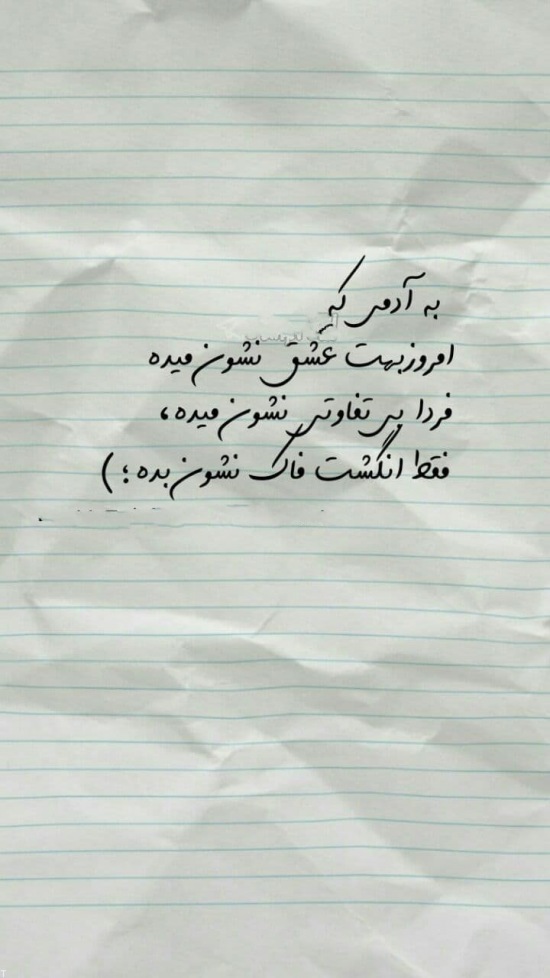 به آدمی که
امروز بهت عشق نشون میده
فردا بی تفاوتی نشون میده،
فقط انگشت فاک نشون بده ؛)